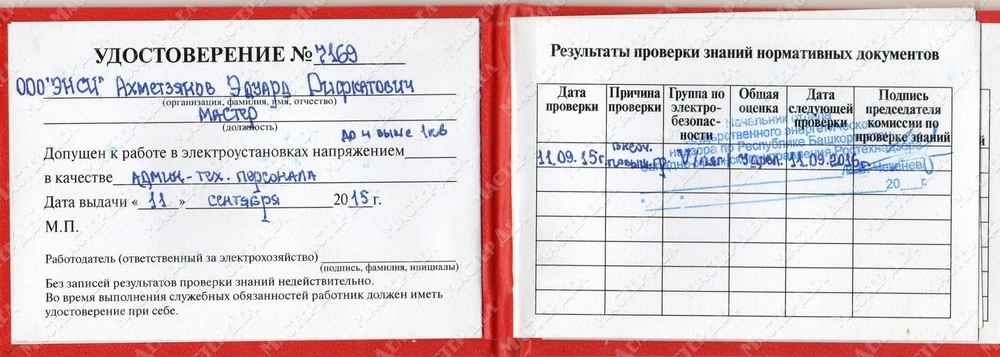 УДОСТОВЕРЕНИЕ № 7169
ООО "ЭНСИ" Ахметзянов Эдуард Рифкатович
(организация, фамилия, имя, отчество)
МАСТЕР
(должность)
до и выше 1кв
Допущен к работе в электроустановках напряжением
в качестве АДМИН-ТЕХ. ПЕРСОНАЛА
Дата выдачи « 11 » СЕНТЯБРЯ 2015г.
М.П.
Работодатель (ответственный за электрохозяйство)
(подпись, фамилия, инициалы)
Без записей результатов проверки знаний недействительно.
Во время выполнения служебных обязанностей работник должен иметь
удостоверение при себе.
Результаты проверки знаний нормативных документов
Дата проверки Причина проверки Группа по электро-безопас-ности Общая оценка Дата следующей проверки Подпись председателя комиссии по проверке знаний
11.09.15г. V 11.09.2016г.
Начальник отдела
государственного энергетического
надзора по Республике Башкортостан
управления Ростехнадзора
20 г.
МАСТЕР ДЕЛА